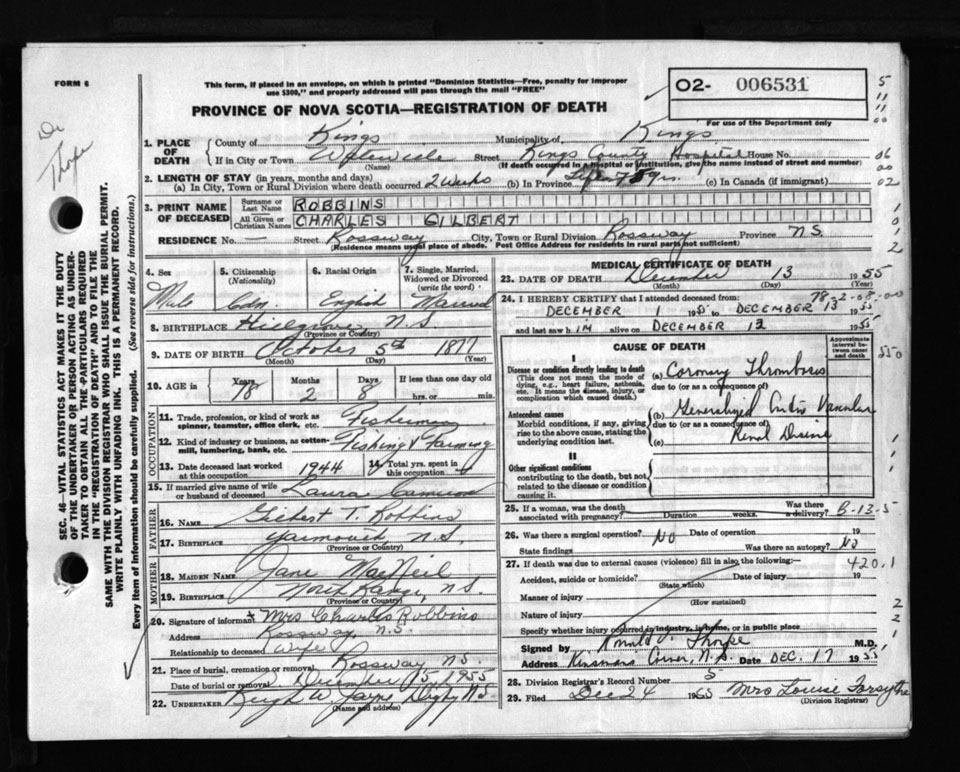 FORM 6
This form, if placed in an envelope, on which is printed "Dominion Statistics—Free, penalty for improper
use $300," and properly addressed will pass through the mail "FREE"
PROVINCE OF NOVA SCOTIA—REGISTRATION OF DEATH
O2- 006531
For use of the Department only
Dr
Thorpe
SEC. 46—VITAL STATISTICS ACT MAKES IT THE DUTY
OF THE UNDERTAKER OR PERSON ACTING AS UNDER-
TAKER TO OBTAIN ALL THE PARTICULARS REQUIRED
IN THE "REGISTRATION OF DEATH" AND TO FILE THE
SAME WITH THE DIVISION REGISTRAR WHO SHALL ISSUE THE BURIAL PERMIT.
WRITE PLAINLY WITH UNFADING INK. THIS IS A PERMANENT RECORD.
Every item of information should be carefully supplied. (See reverse side for instructions.)
1. PLACE OF DEATH
County of Kings Municipality of Kings
If in City or Town Street Kings County Hospital House No.
(Name) (If death occurred in a Hospital or Institution, give the name instead of street and number)
2. LENGTH OF STAY (in years, months and days)
(a) In City, Town or Rural Division where death occurred 2 weeks (b) In Province 78 yrs. (c) In Canada (if immigrant)
3. PRINT NAME OF DECEASED
Surname or Last Name ROBBINS
All Given or Christian Names CHARLES GILBERT
RESIDENCE No. — Street Rossway City, Town or Rural Division Rossway Province N.S.
(Residence means usual place of abode. Post Office Address for residents in rural parts not sufficient)
4. Sex 5. Citizenship (Nationality) 6. Racial Origin 7. Single, Married, Widowed or Divorced (write the word)
Male Cdn. English Married
8. BIRTHPLACE Hillgrove, N.S.
(Province or Country)
9. DATE OF BIRTH October 5th 1877
(Month) (Day) (Year)
10. AGE in Years Months Days If less than one day old
78 2 8 hrs. or min.
OCCUPATION
11. Trade, profession, or kind of work as
spinner, teamster, office clerk, etc. Fisherman
12. Kind of industry or business, as cotton-
mill, lumbering, bank, etc. Fishing & Farming
13. Date deceased last worked
at this occupation 1944
14. Total yrs. spent in
this occupation
15. If married give name of wife
or husband of deceased Laura Cameron
FATHER
16. NAME Gilbert T. Robbins
17. BIRTHPLACE Yarmouth, N.S.
(Province or Country)
MOTHER
18. MAIDEN NAME Jane MacNeil
19. BIRTHPLACE North Range, N.S.
(Province or Country)
20. Signature of informant Mrs Charles Robbins
Address Rossway, N.S.
Relationship to deceased Wife
21. Place of burial, cremation or removal Rossway, N.S.
Date of burial or removal December 15, 1955
22. UNDERTAKER W. Jayne Digby N.S.
(Name and address)
MEDICAL CERTIFICATE OF DEATH
23. DATE OF DEATH December 13 1955
(Month) (Day) (Year)
24. I HEREBY CERTIFY that I attended deceased from: 78-2-08-00
DECEMBER 1 1955 to DECEMBER 13 1955
and last saw him alive on DECEMBER 13 1955
CAUSE OF DEATH
Approximate interval between onset and death
I
Disease or condition directly leading to death
(This does not mean the mode of
dying, e.g., heart failure, asthenia,
etc. It means the disease, injury, or
complication which caused death.)
(a) Coronary Thrombosis
due to (or as a consequence of)
Antecedent causes
Morbid conditions, if any, giving
rise to the above cause, stating the
underlying condition last.
(b) Generalized Cardio Vascular
due to (or as a consequence of)
(c) Renal Disease
II
Other significant conditions
contributing to the death, but not
related to the disease or condition
causing it.
25. If a woman, was the death
associated with pregnancy? Duration weeks. Was there a delivery?
26. Was there a surgical operation? No Date of operation 19
State findings Was there an autopsy? No
27. If death was due to external causes (violence) fill in also the following: 420.1
Accident, suicide or homicide? Date of injury 19
(State which)
Manner of injury
(How sustained)
Nature of injury
Specify whether injury occurred in industry, in home, or in public place
Signed by Ronald Thorpe M.D.
Address Kinsmans Corner, N.S. Date DEC. 17 1955
28. Division Registrar's Record Number 5
29. Filed Dec 24 1955 Mrs Louise Forsythe
(Division Registrar)